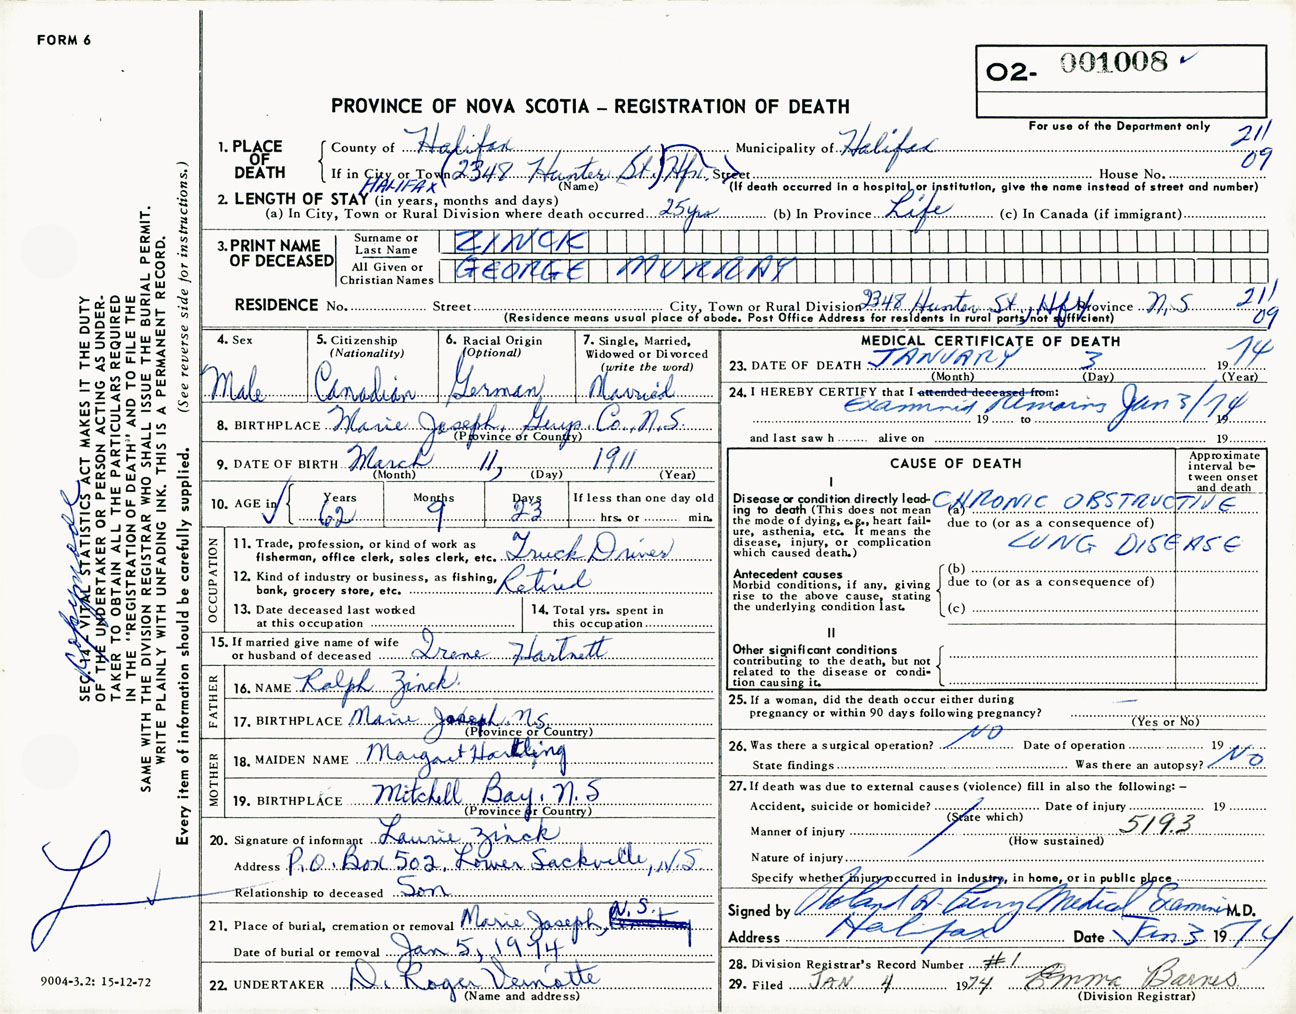 FORM 6
O2- 001008
PROVINCE OF NOVA SCOTIA – REGISTRATION OF DEATH
For use of the Department only
211
09
1. PLACE OF DEATH
County of Halifax Municipality of Halifax
If in City or Town (2348 Hunter St.) Hfx. Street House No.
HALIFAX (Name) (If death occurred in a hospital or institution, give the name instead of street and number)
2. LENGTH OF STAY (in years, months and days)
(a) In City, Town or Rural Division where death occurred 25 yrs (b) In Province Life (c) In Canada (if immigrant)
3. PRINT NAME OF DECEASED
Surname or Last Name ZINCK
All Given or Christian Names GEORGE MURRAY
RESIDENCE No. Street City, Town or Rural Division 2348 Hunter St., Hfx Province N.S
(Residence means usual place of abode. Post Office Address for residents in rural parts not sufficient)
211
09
4. Sex
Male
5. Citizenship (Nationality)
Canadian
6. Racial Origin (Optional)
German
7. Single, Married, Widowed or Divorced (write the word)
Married
8. BIRTHPLACE Marie Joseph, Guys. Co., N.S.
(Province or Country)
9. DATE OF BIRTH March 11, 1911
(Month) (Day) (Year)
10. AGE in Years 62 Months 9 Days 23 If less than one day old
hrs. or min.
OCCUPATION
11. Trade, profession, or kind of work as
fisherman, office clerk, sales clerk, etc. Truck Driver
12. Kind of industry or business, as fishing,
bank, grocery store, etc. Retired
13. Date deceased last worked
at this occupation
14. Total yrs. spent in
this occupation
15. If married give name of wife
or husband of deceased Irene Hartnett
FATHER
16. NAME Ralph Zinck
17. BIRTHPLACE Marie Joseph, N.S.
(Province or Country)
MOTHER
18. MAIDEN NAME Margaret Hartling
19. BIRTHPLACE Mitchell Bay, N.S
(Province or Country)
20. Signature of informant Laurie Zinck
Address P.O. Box 502, Lower Sackville, N.S
Relationship to deceased Son
21. Place of burial, cremation or removal Marie Joseph, N.S.
Date of burial or removal Jan 5, 1974
22. UNDERTAKER D. Roger
(Name and address)
MEDICAL CERTIFICATE OF DEATH
23. DATE OF DEATH JANUARY 3 1974
(Month) (Day) (Year)
24. I HEREBY CERTIFY that I attended deceased from:
Examined Remains Jan 3/74
19 to 19
and last saw h alive on 19
CAUSE OF DEATH
Approximate interval between onset and death
I
Disease or condition directly leading to death (This does not mean the mode of dying, e.g., heart failure, asthenia, etc. It means the disease, injury, or complication which caused death.)
(a) CHRONIC OBSTRUCTIVE
due to (or as a consequence of)
LUNG DISEASE
Antecedent causes
Morbid conditions, if any, giving rise to the above cause, stating the underlying condition last.
(b)
due to (or as a consequence of)
(c)
II
Other significant conditions
contributing to the death, but not related to the disease or condition causing it.
25. If a woman, did the death occur either during
pregnancy or within 90 days following pregnancy? —
(Yes or No)
26. Was there a surgical operation? NO Date of operation 19
State findings Was there an autopsy? NO
27. If death was due to external causes (violence) fill in also the following: –
Accident, suicide or homicide? Date of injury 19
(State which)
Manner of injury 519.3
(How sustained)
Nature of injury
Specify whether injury occurred in industry, in home, or in public place
Signed by Roland A. Perry Medical Examiner M.D.
Address Halifax Date Jan 3 1974
28. Division Registrar's Record Number #1
29. Filed JAN 4 1974 Emma Barnes
(Division Registrar)
SEC. 14 – VITAL STATISTICS ACT MAKES IT THE DUTY
OF THE UNDERTAKER OR PERSON ACTING AS UNDERTAKER TO OBTAIN ALL THE PARTICULARS REQUIRED
IN THE "REGISTRATION OF DEATH" AND TO FILE THE
SAME WITH THE DIVISION REGISTRAR WHO SHALL ISSUE THE BURIAL PERMIT.
WRITE PLAINLY WITH UNFADING INK. THIS IS A PERMANENT RECORD.
Every item of information should be carefully supplied. (See reverse side for instructions.)
9004-3.2: 15-12-72